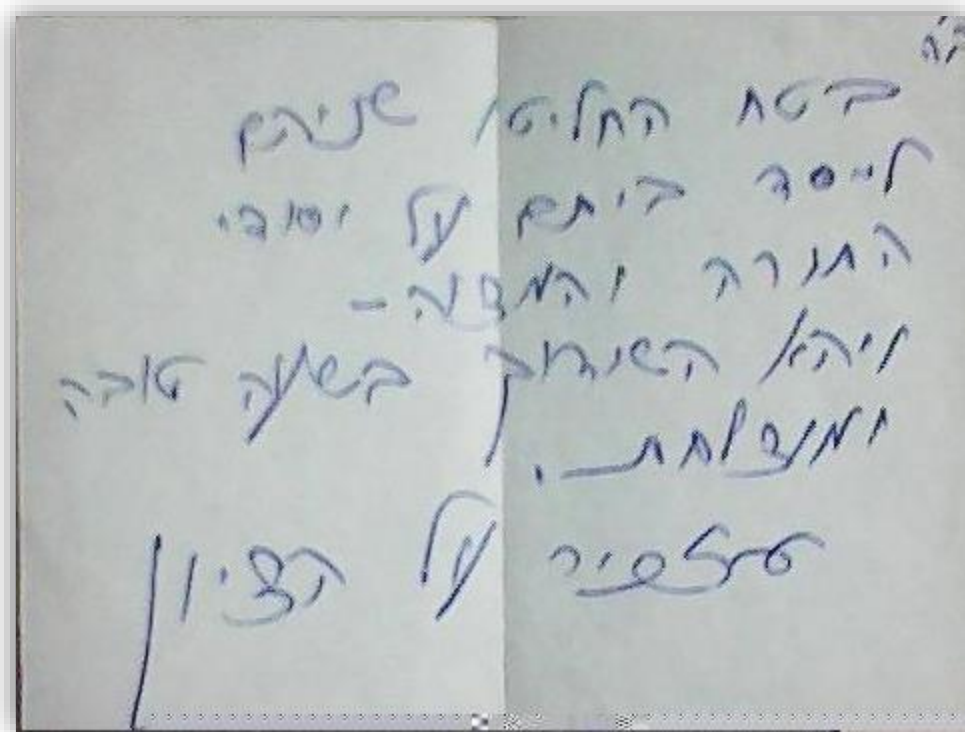 ב"ה
בטח החליטו שניהם
לייסד ביתם על יסודי
התורה והמצוה -
ויהא השידוך בשעה טובה
ומוצלחת.
אזכיר על הציון